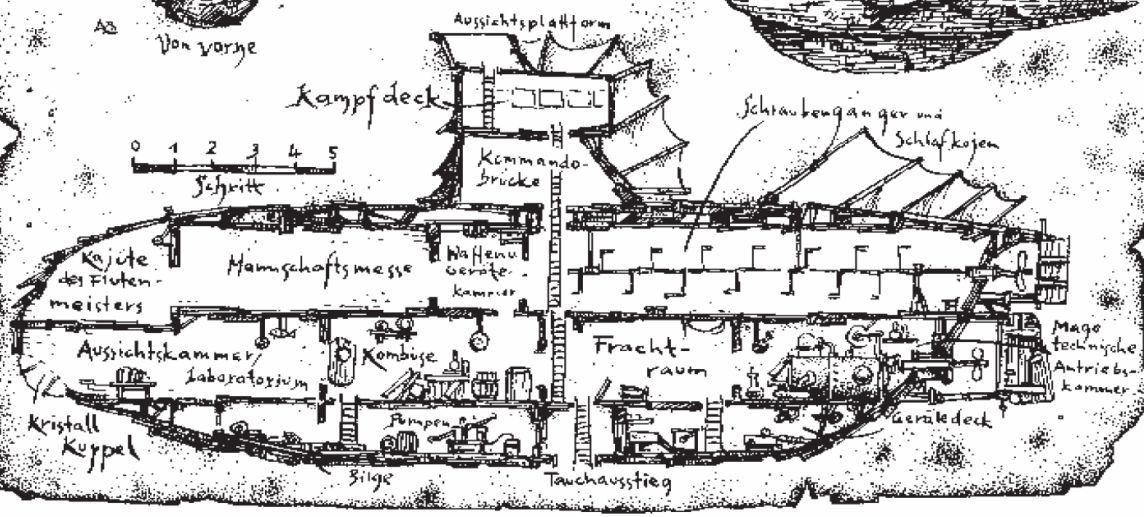 A3
Von vorne
Aussichtsplattform
Kampfdeck
0 1 2 3 4 5
Schritt
Kommando-
brücke
Schraubengänger und
Schlafkojen
Kajüte
des Fluten-
meisters
Mannschaftsmesse
Waffen u
Geräte-
kammer
Aussichtskammer
Laboratorium
Kombüse
Fracht-
raum
Mago
technische
Antriebs-
kammer
Kristall
Kuppel
Pumpen
Gerätedeck
Bilge
Tauchausstieg